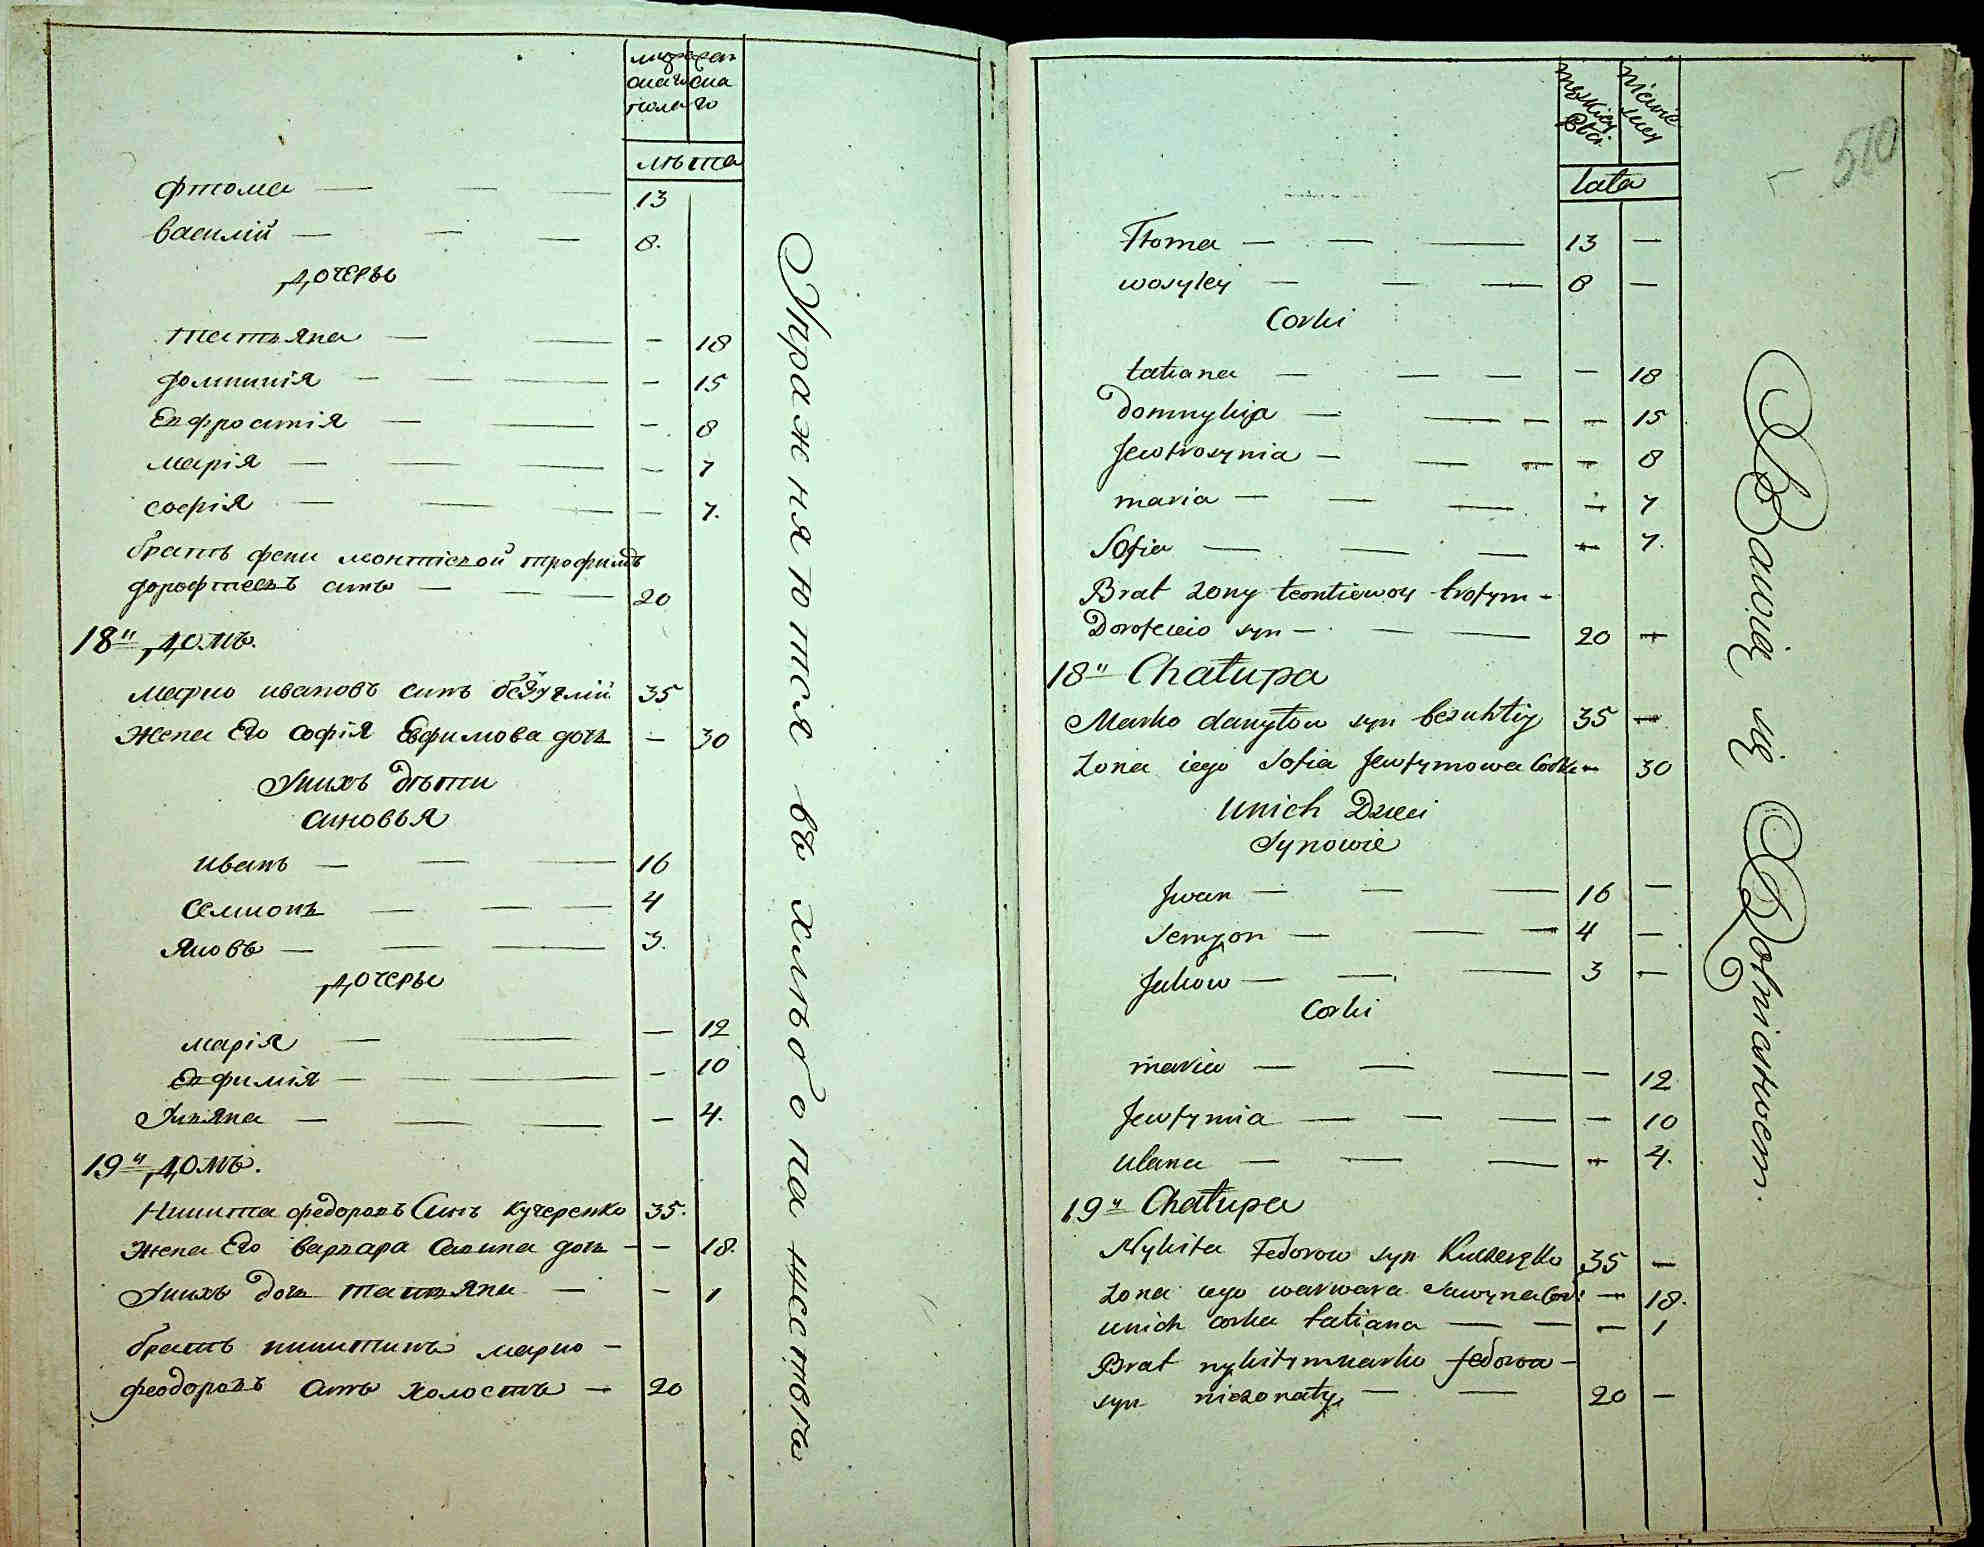 мужескаго полу
женскаго
лѣта
Фтома — — — 13
Василій — — — 8.
дочеры
татьяна — — — 18
домникія — — — 15
Евфросинія — — — 8
Марія — — — 7
Софія — — — 7.
братъ трофимъ
дорофѣевъ синъ — — — 20
18й домъ.
Марко ивановъ синъ безуглій 35
Жена Его Софія Евфимова дочь — 30
Унихъ дѣти
синовья
иванъ — — — 16
Семионъ — — — 4
Яковъ — — — 3.
дочеры
Марія — — — 12
Евфимія — — — 10
Ульяна — — — 4.
19й домъ.
Никита федоровъ Синъ Кучеренко 35.
Жена Его варвара Савина дочь — — 18.
Унихъ дочь татьяна — — 1
братъ никитинъ марко —
феодоровъ синъ холостъ — 20
Упражняются въ хлѣбопашествѣ
męskiey Płci
niewiesciey
lata
510
Ftoma — — — 13 —
wasyley — — — 8 —
Corki
tatiana — — — — 18
Domnykija — — — — 15
Jewfrosynia — — — — 8
maria — — — 7
Sofia — — — — 7.
Brat zony leontiewoy trofym -
Dorofeiewo syn — — — 20 —
18й Chałupa
Marko danyłow syn bezuhliy 35 —
Zona iego Sofia Jewfymowa Corka — 30
unich Dzieci
Synowie
Jwan — — — 16 —
Semyon — — — 4 —
Jakow — — — 3 —
Corki
maria — — — — 12
Jewfymia — — — — 10
ulana — — — — 4.
19й Chałupa
Nykita Fedorow syn Kuczeręko 35 —
Zona iego warwara Sawyna Cor: — 18.
unich corka tatiana — — — 1
Brat nykityn marko fedorow —
syn niezonaty — — 20 —
Bawią się Rolnictwem.